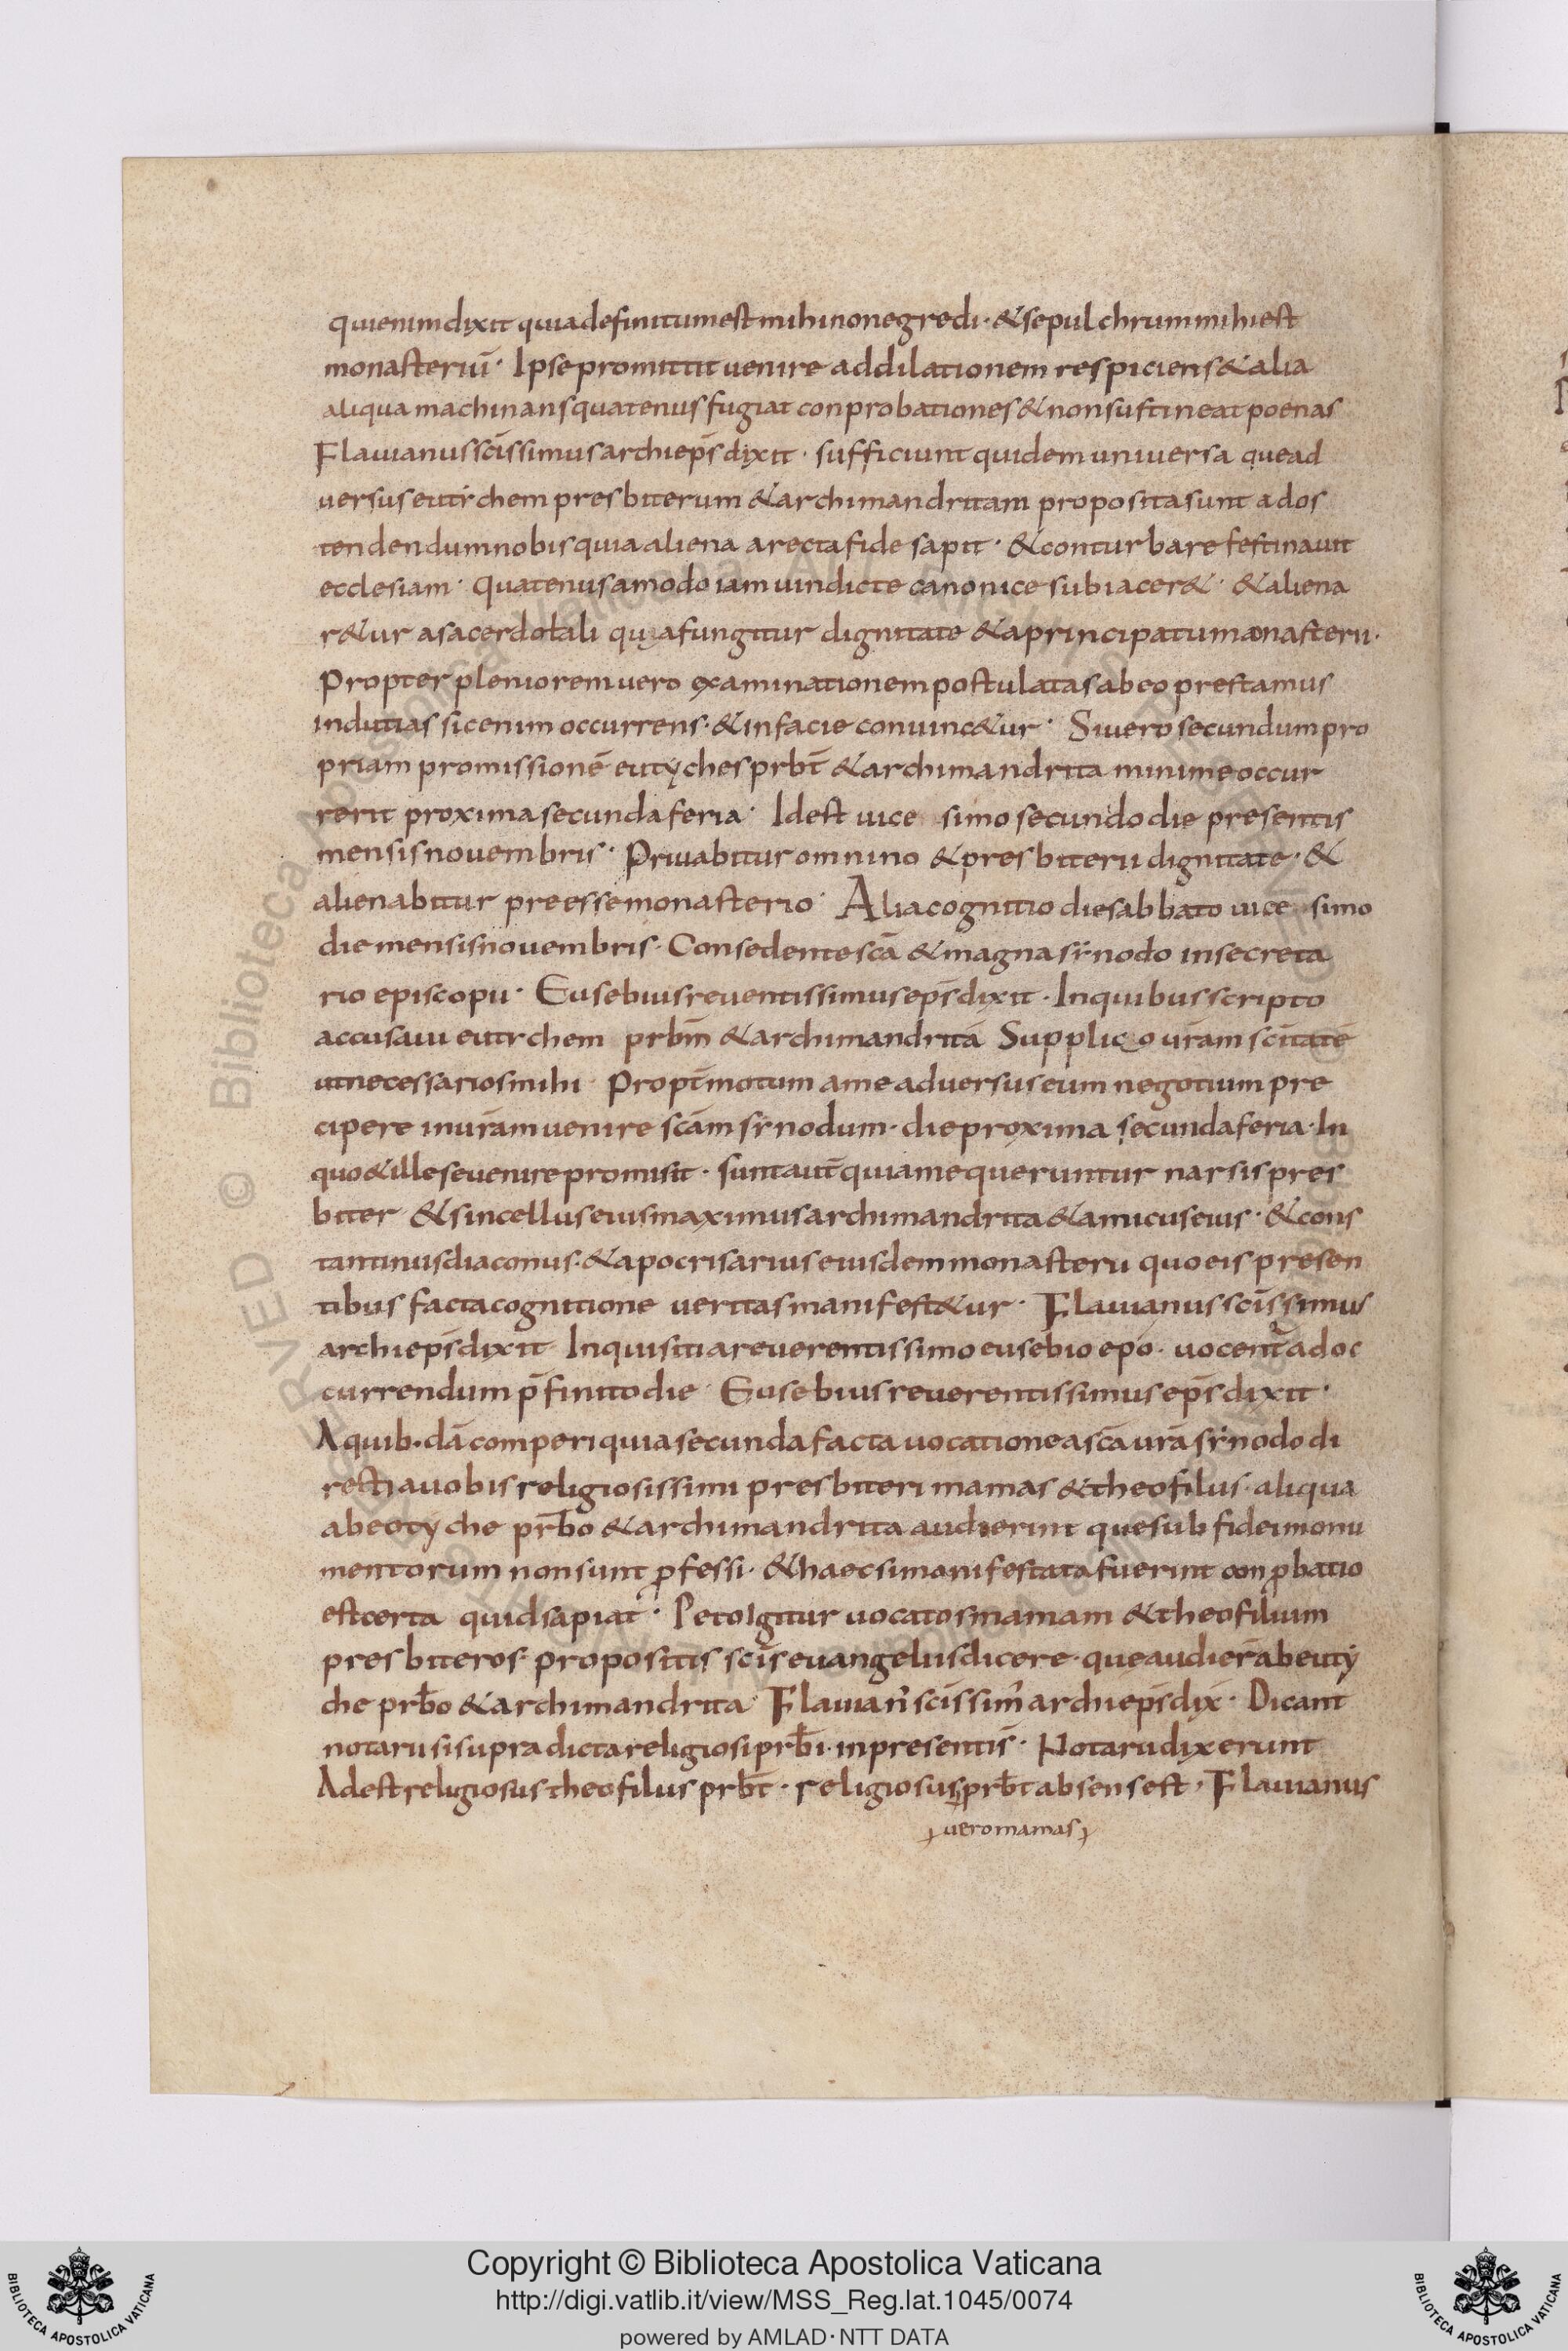 qui enim dixit quia definitum est mihi non egredi · & sepulchrum mihi est
monasteriū · Ipse promittit uenire ad dilationem respiciens & alia
aliqua machinans quatenus fugiat conprobationes & non sustineat poenas
Flauianus sc̄issimus archiep̄s dixit · sufficiunt quidem uniuersa que ad
uersus eutychem presbiterum & archimandritam proposita sunt ad os
tendendum nobis quia aliena a recta fide sapit · & conturbare festinauit
ecclesiam · quatenus amodo iam uindicte canonice subiacer& · & aliena
r&ur a sacerdotali qui a fungitur dignitate & a principatu monasterii ·
Propter pleniorem uero examinationem postulatas ab eo prestamus
indutias sic enim occurrens · & in facie conuinc&ur · Si uero secundum pro
priam promissionē eutyches prb̄t & archimandrita minime occur
rerit proxima secunda feria · Idest uice simo secundo die presentis
mensis nouembris · Priuabitur omnino & presbiterii dignitate · &
alienabitur preesse monasterio · Alia cognitio die sabbato uice simo
die mensis nouembris · Consedente sc̄a & magna synodo in secreta
rio episcopii · Eusebius reuentissimus ep̄s dixit · In quibus scripto
accusaui eutychem prb̄m & archimandritā Supplico ur̄am sc̄itatē
ut necessarios mihi · Propt̄ motum a me aduersus eum negotium pre
cipere in ur̄am uenire sc̄am synodum · die proxima secunda feria · In
quo & ille se uenire promisit · sunt aut̄ qui a me queruntur narsis pres
biter & sincellus eius maximus archimandrita & amicus eius · & cons
tantinus diaconus · & apocrisarius eiusdem monasterii quo eis presen
tibus facta cognitione ueritas manifest&ur · Flauianus sc̄issimus
archiep̄s dixit · Inquisiti a reuerentissimo eusebio ep̄o · uocent̄ ad oc
currendum p̄finito die · Eusebius reuerentissimus ep̄s dixit ·
A quib · dā comperi quia secunda facta uocatione a sc̄a ur̄ā synodo di
recti a uobis religiosissimi presbiteri mamas & theofilus · aliqua
ab eotyche pr̄bo & archimandrita audierint que sub fidei monu
mentorum non sunt ꝓfessi · & haec si manifestata fuerint conꝓbatio
est certa quid sapiat · Peto Igitur uocatos mamam & theofilium
presbiteros propositis sc̄is euangeliis dicere · que audier̄ ab euty
che prb̄o & archimandrita Flauian̄ sc̄issim̄ archiep̄s dix̄ · Dicant
notarii si supradicta religiosi prb̄i · in presentis · Notarii dixerunt
Adest religiosus theofilus prb̄t · religiosus prb̄t absens est · Flauianus
uero mamas
Copyright © Biblioteca Apostolica Vaticana
http://digi.vatlib.it/view/MSS_Reg.lat.1045/0074
powered by AMLAD · NTT DATA
BIBLIOTECA APOSTOLICA VATICANA
BIBLIOTECA APOSTOLICA VATICANA